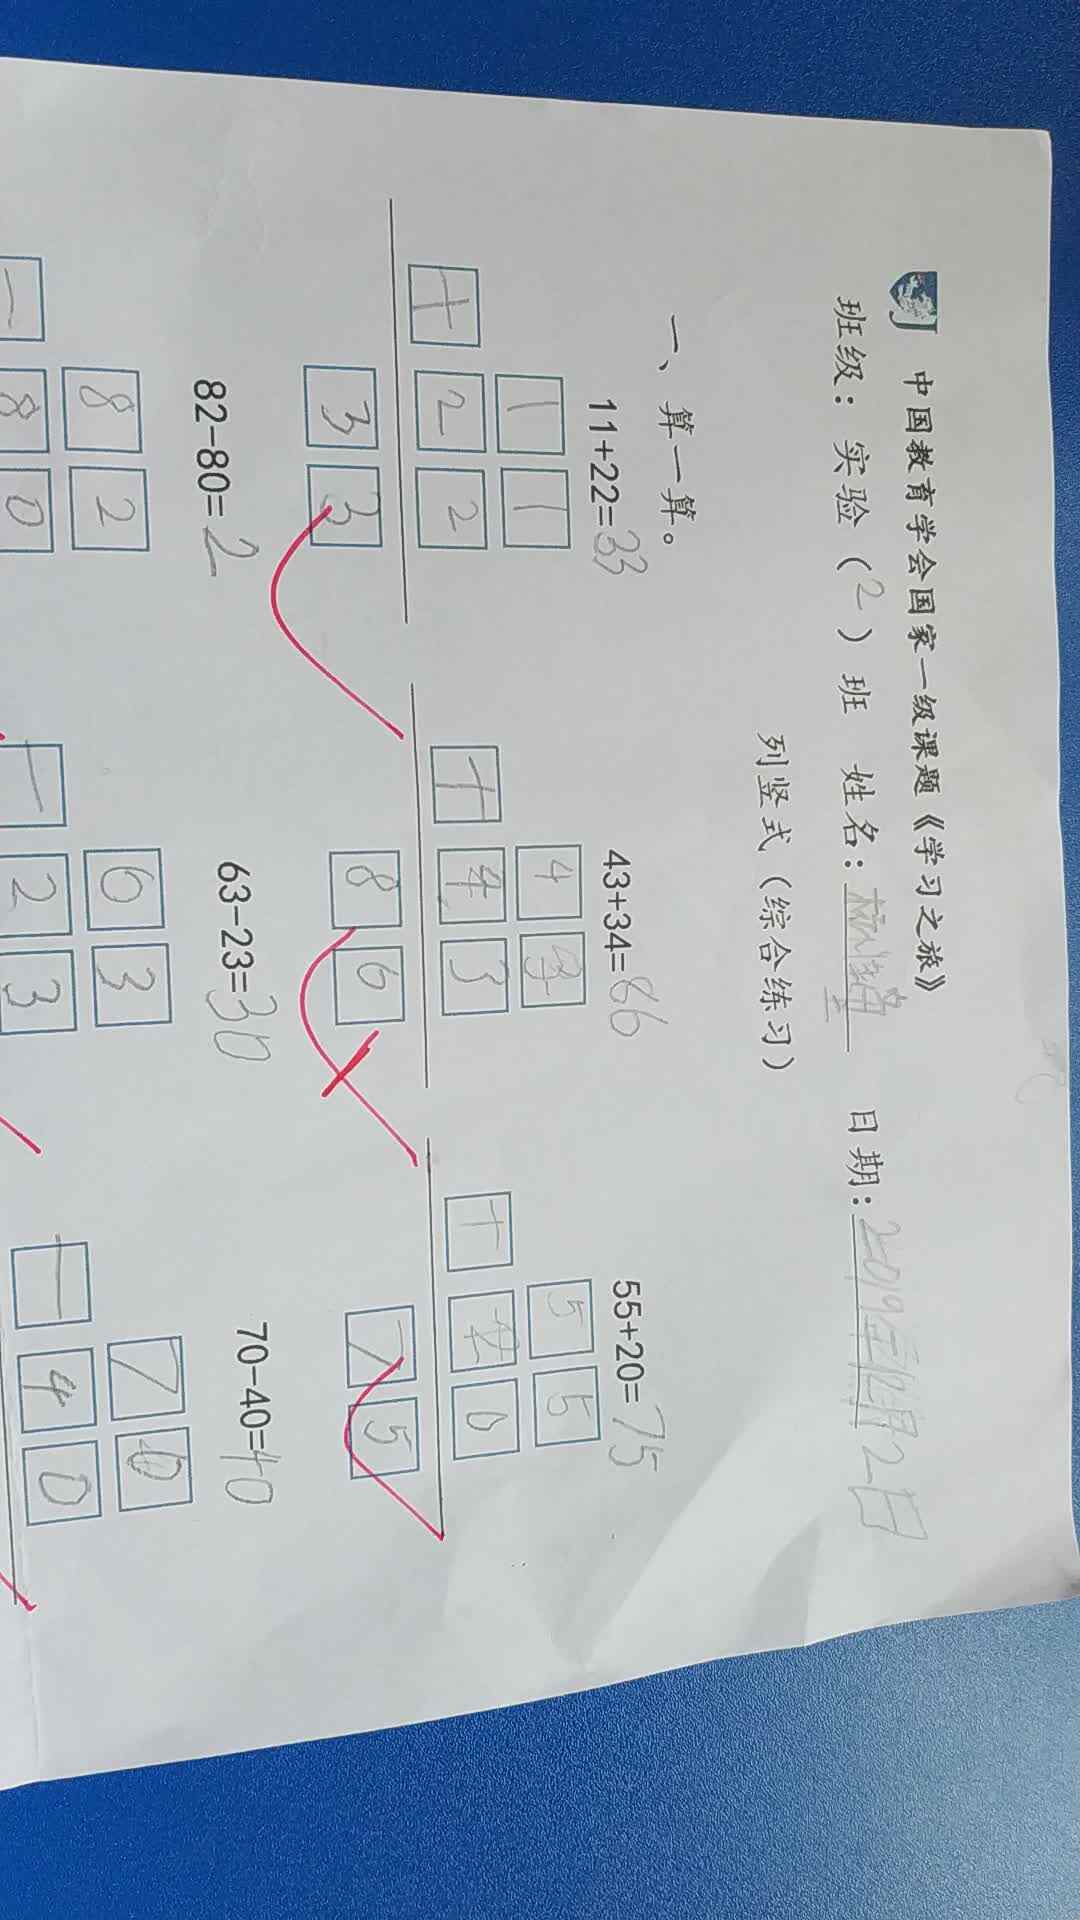 中国教育学会国家一级课题《学习之旅》
班级：实验（2）班 姓名： 日期：2019年12月2日
列竖式（综合练习）
一、算一算。
11+22=33 43+34=86 55+20=75
1 1 4 3 5 5
+ 2 2 + 4 3 + 2 0
3 3 8 6 7 5
82-80=2 63-23=30 70-40=40
8 2 6 3 7 0
- 8 0 - 2 3 - 4 0